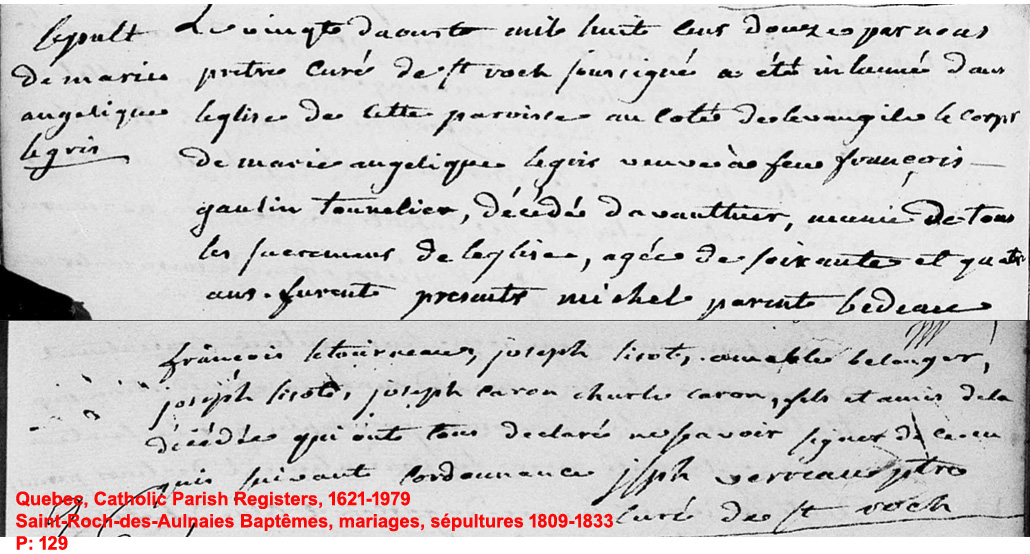 sepult
de marie
angelique
legris
Le vingt daoust mil huit cens douze par nous
pretre curé de st roch soussigné a été inhumé dans
leglise de cette paroisse au coté de levangile le corps
de marie angelique legris veuve à feu françois
gaulin tonnelier, décédée davanthier, munie de tous
les sacremens de leglise, agée de soixante et quatre
ans. furent presents michel parent bedeau
françois letourneau, joseph sirois, amable belanger,
joseph sirois, joseph caron charle caron, fils et amis de la
décédée qui ont tous declaré ne savoir signer de ce en
quis suivant lordonnance jsph verreau ptre
curé de st roch
Quebec, Catholic Parish Registers, 1621-1979
Saint-Roch-des-Aulnaies Baptêmes, mariages, sépultures 1809-1833
P: 129